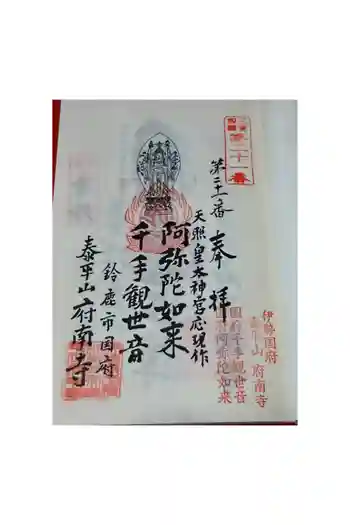 第二十一番
第二十一番
奉拝
天照皇太神宮応現作
阿弥陀如来
千手觀世音
鈴鹿市国府
泰平山府南寺
伊勢国府
山 府南寺
国府千手観世音
阿弥陀如来